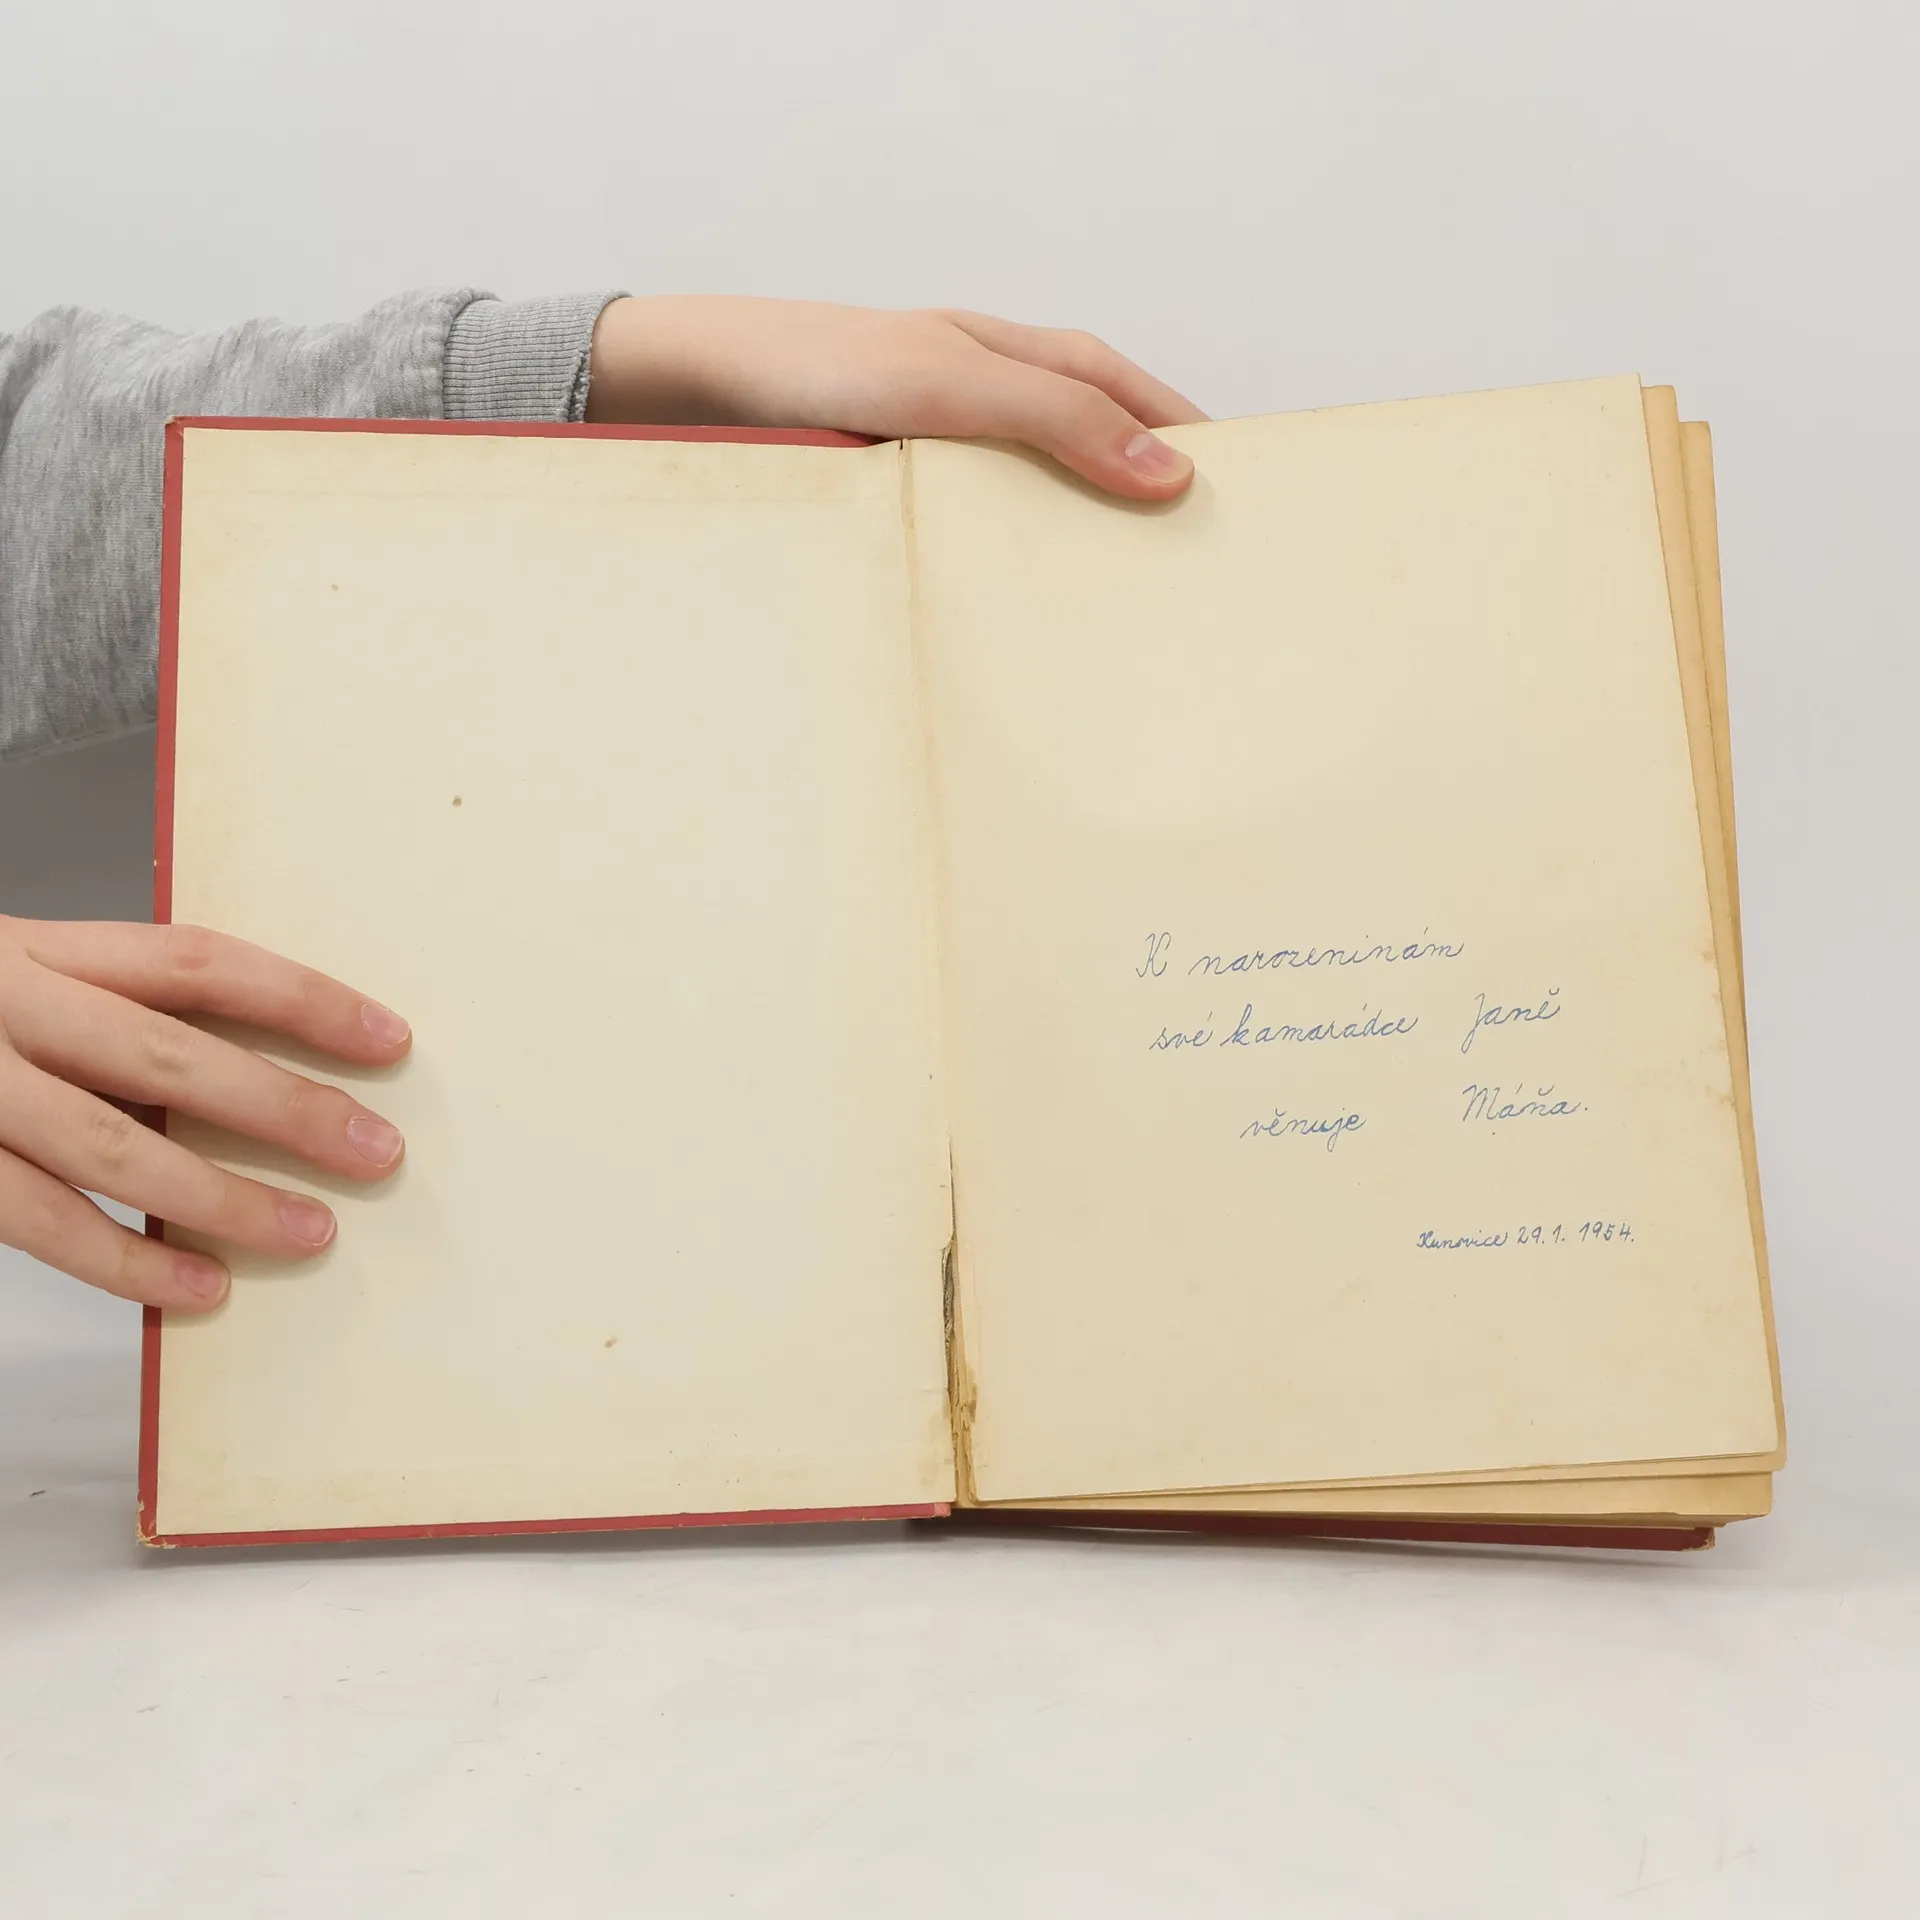 K narozeninám
své kamarádce Janě
věnuje Máňa.
Kunovice 29.1. 1954.